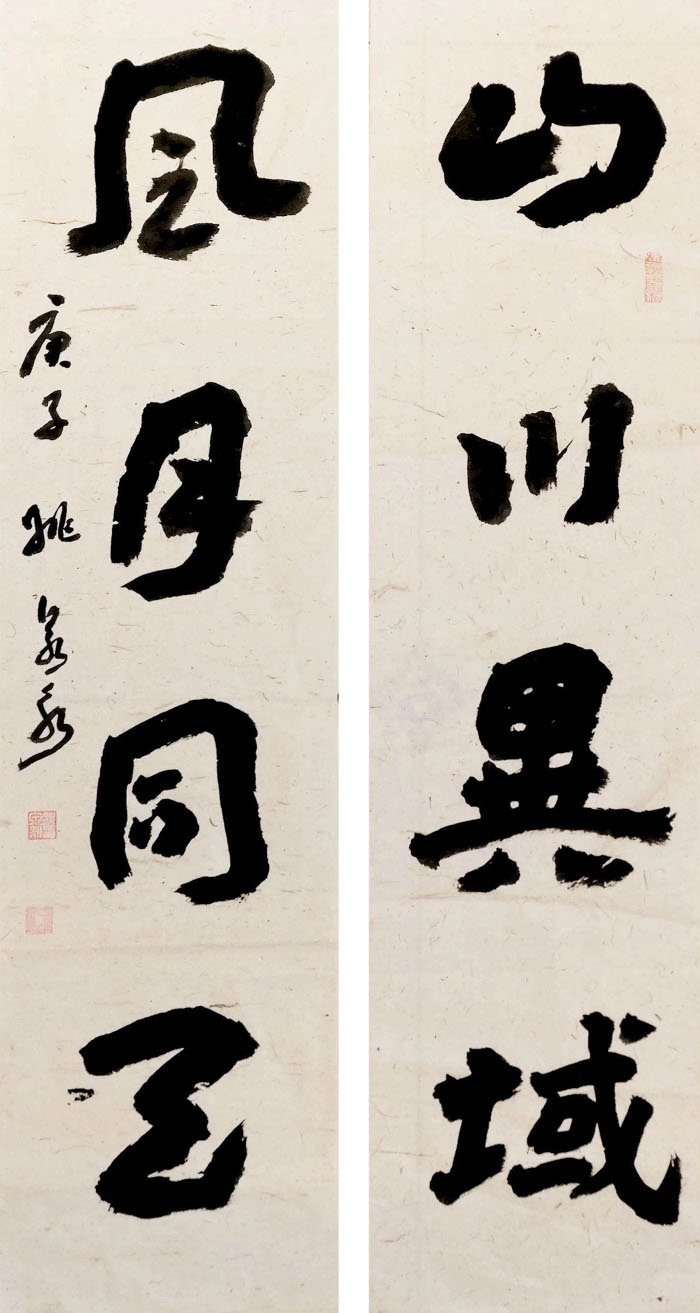 山川異域
風月同天
庚子 姚